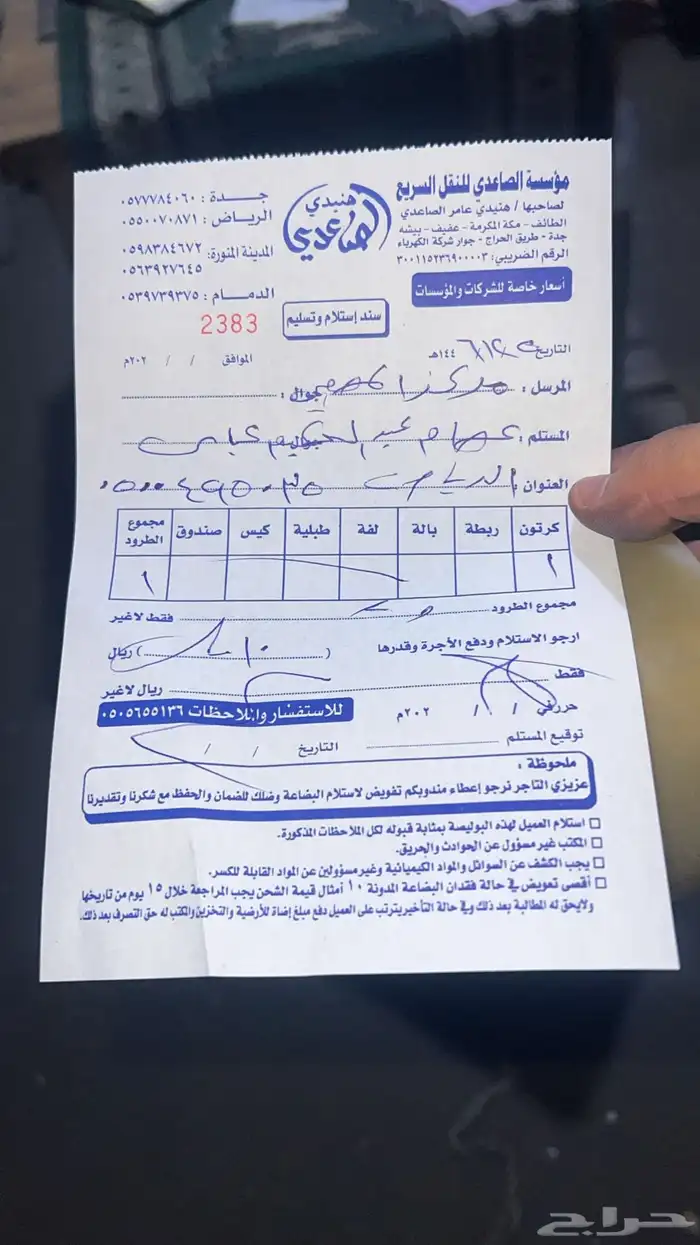 مؤسسة الصاعدي للنقل السريع
لصاحبها / هنيدي عامر الصاعدي
الطائف - مكة المكرمة - عفيف - بيشه
جدة - طريق الحراج - جوار شركة الكهرباء
الرقم الضريبي: ٣٠٠١١٥٢٣٦٩٠٠٠٠٣
أسعار خاصة للشركات والمؤسسات
هنيدي
الصاعدي
سند إستلام وتسليم
جدة : ٠٥٧٧٧٨٤٠٦٠
الرياض : ٠٥٥٠٠٧٠٨٧١
المدينة المنورة: ٠٥٩٨٣٨٤٦٧٢
٠٥٦٣٩٢٧٦٤٥
الدمام : ٠٥٣٩٧٣٩٣٧٥
2383
التاريخ ١٤٤هـ الموافق / / ٢٠٢م
المرسل : مركز جوال :
المستلم : عصام عبد الحكيم جوال :
العنوان : الرياض
كرتون ربطة بالة لفة طبلية كيس صندوق مجموع الطرود
١ ١
مجموع الطرود فقط لاغير
ارجو الاستلام ودفع الأجرة وقدرها ( ) ريال
فقط ريال لاغير
حرر في / / ٢٠٢م للاستفسار والملاحظات ٠٥٠٥٦٥٥١٣٦
توقيع المستلم التاريخ / /
ملحوظة :
عزيزي التاجر نرجو إعطاء مندوبكم تفويض لاستلام البضاعة وضلك للضمان والحفظ مع شكرنا وتقديرنا
استلام العميل لهذه البوليصة بمثابة قبوله لكل الملاحظات المذكورة.
المكتب غير مسؤول عن الحوادث والحريق.
يجب الكشف عن السوائل والمواد الكيميائية وغير مسؤولين عن المواد القابلة للكسر.
أقسى تعويض في حالة فقدان البضاعة المدونة ١٠ أمثال قيمة الشحن يجب المراجعة خلال ١٥ يوم من تاريخها
ولايحق له المطالبة بعد ذلك وفي حالة التأخير يترتب على العميل دفع مبلغ إضاة للأرضية والتخزين والمكتب له حق التصرف بعد ذلك.
حراج